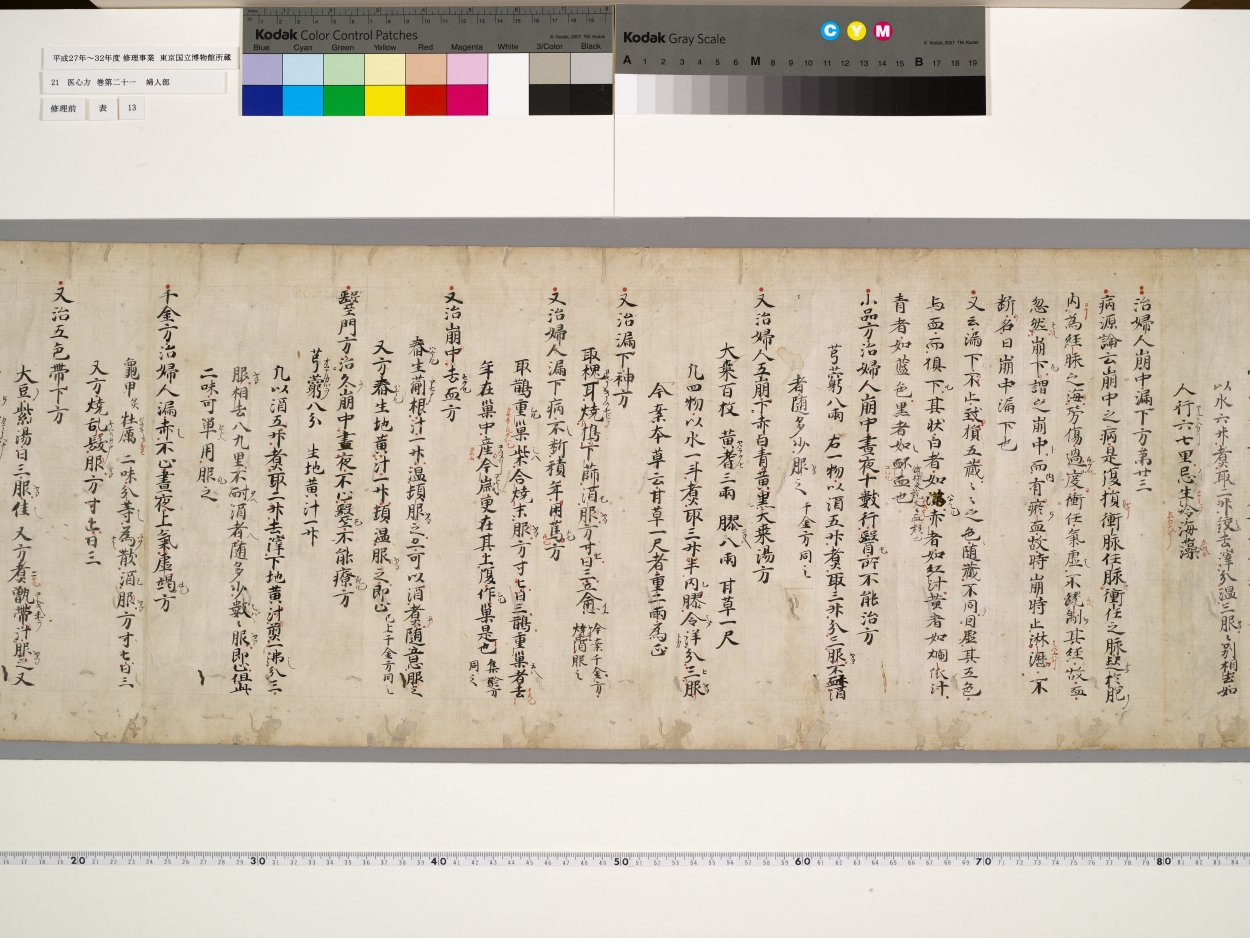 平成27年～32年度 修理事業 東京国立博物館所蔵
21 医心方 巻第二十一 婦人部
修理前 表 13
Kodak Color Control Patches
Blue Cyan Green Yellow Red Magenta White 3/Color Black
Kodak Gray Scale
C Y M
A 1 2 3 4 5 6 M 8 9 10 11 12 13 14 15 B 17 18 19
以水六升煮取一升絞去滓分温三服々別相去如
人行六七里忌生冷海藻
治婦人崩中漏下方第廿三
病源論云崩中之病是傷損衝脉任脉衝任之脉起於胞
内為經脉之海労傷過度衝任氣虚不能制其經故血
忽然崩下謂之崩中而有瘀血故時崩時止淋瀝不
断名曰崩中漏下也
又云漏下不止致損五蔵々々之色随蔵不同虚其五色
与血而俱下其状白者如涕赤者如紅汁黄者如爛依汁
青者如藍色黒者如衃血也
小品方治婦人崩中晝夜十數行醫所不能治方
芎藭八兩 右一物以酒五升煮取三升分三服不飲酒
者随多少服之 千金方同之
又治婦人五崩下赤白青黄黒大棗湯方
大棗百枚 黄耆三兩 膠八兩 甘草一尺
凡四物以水一斗煮取三升半内膠令洋分三服
今案本草云甘草一尺者重二兩為正
又治漏下神方
取槐耳燒搗下篩酒服方寸匕日三立愈 今案千金方燒酒服之
又治婦人漏下病不断積年困篤方
取鵲重巢柴合燒末服方寸匕日三鵲重巢者去
年在巢中産今歳更在其上復作巢是也 集驗方同之
又治崩中去血方
春生薊根汁一升温頓服之亦可以酒煮随意服之
又方舂生地黄汁一升頓温服之即止 已上千金方同之
醫門方治久崩中晝夜不止醫不能療方
芎藭八分 生地黄汁一升
凡以酒五升煮取二升去滓下地黄汁煎一沸分三
服相去八九里不耐酒者随多少數々服即止
二味可単用服之
千金方治婦人漏赤不止晝夜上氣虚竭方
龜甲炙 牡厲 二味分等為散酒服方寸匕日三
又方燒乱髮服方寸匕日三
又治五色帶下方
大豆紫湯日三服佳 又方煮甑帶汁服之又